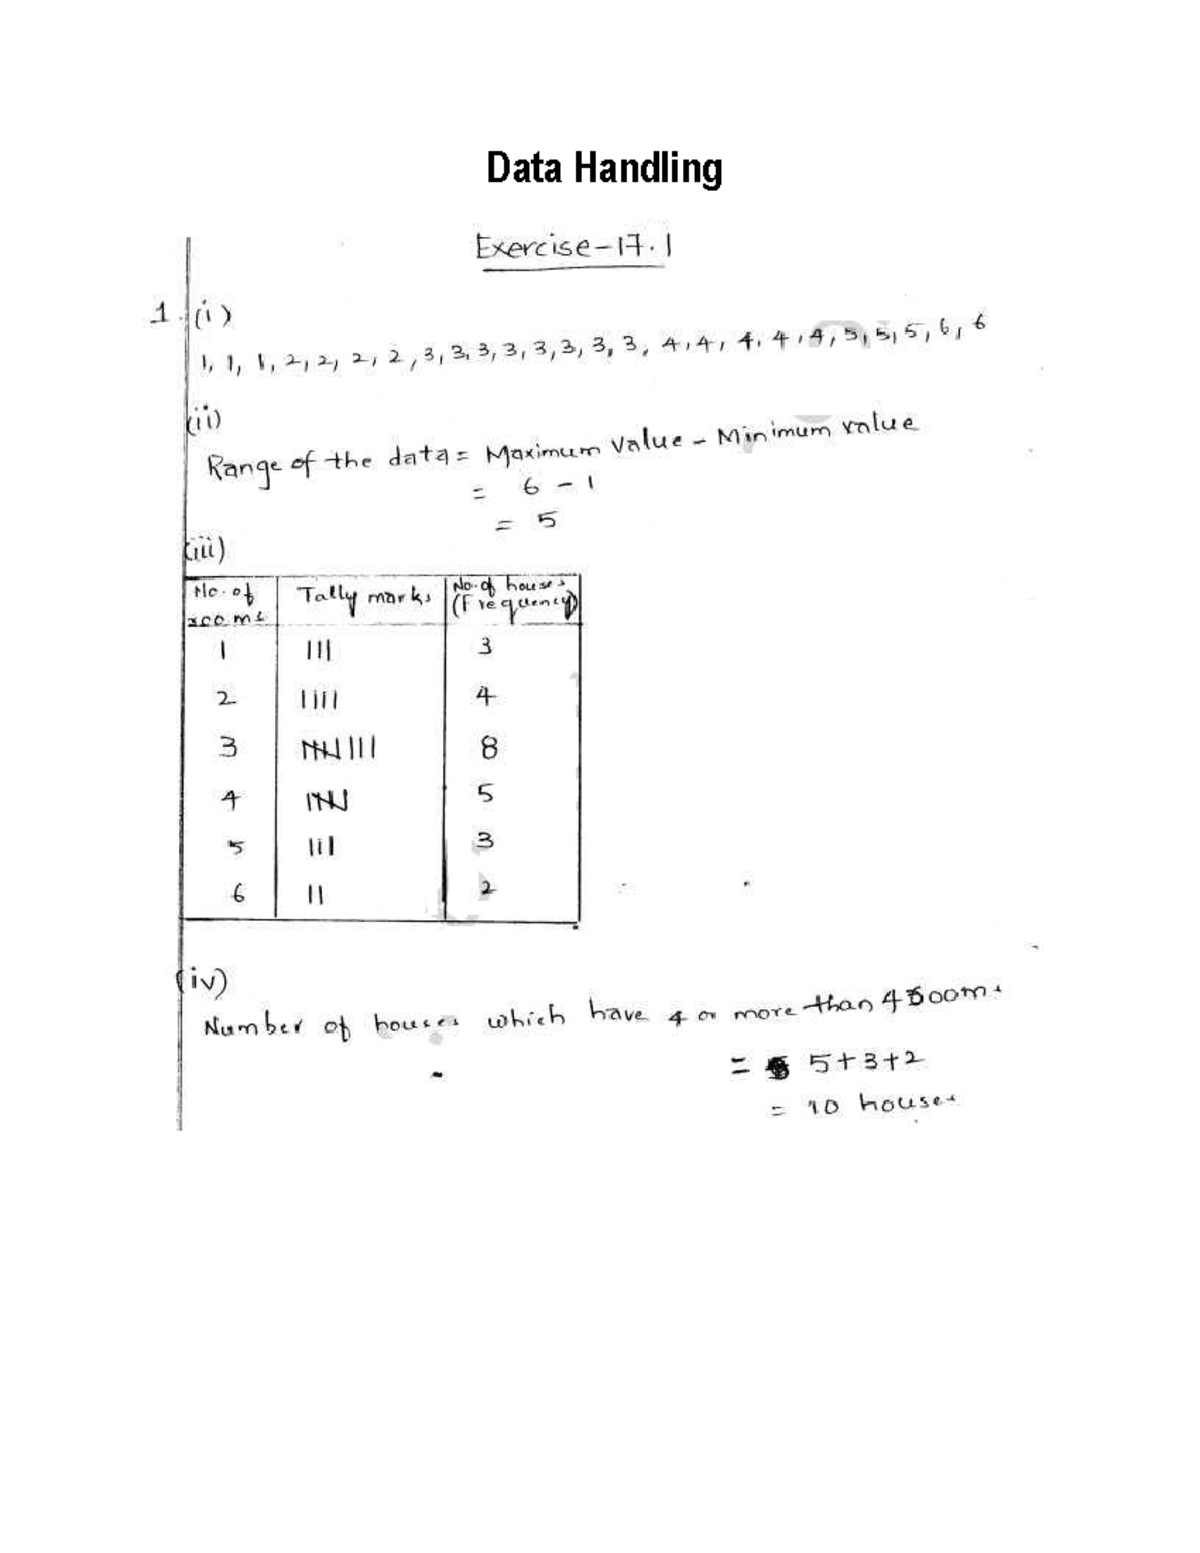 Data Handling
Exercise-17.1
1. (i)
1, 1, 1, 2, 2, 2, 2, 3, 3, 3, 3, 3, 3, 3, 3, 4, 4, 4, 4, 4, 5, 5, 5, 6, 6
(ii)
Range of the data = Maximum Value - Minimum value
= 6 - 1
= 5
(iii)
No. of rooms Tally marks No. of houses (Frequency)
1 ||| 3
2 |||| 4
3 |||| ||| 8
4 |||| 5
5 ||| 3
6 || 2
(iv)
Number of houses which have 4 or more than 4 rooms
= 5+3+2
= 10 houses